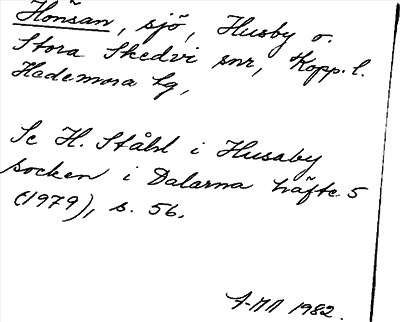 Hönsan, sjö, Husby o.
Stora Skedvi snr, Kopp. l.
Hedemora tg,
Se H. Ståhl i Husaby
socken i Dalarna häfte 5
(1979), s. 56.
1982.